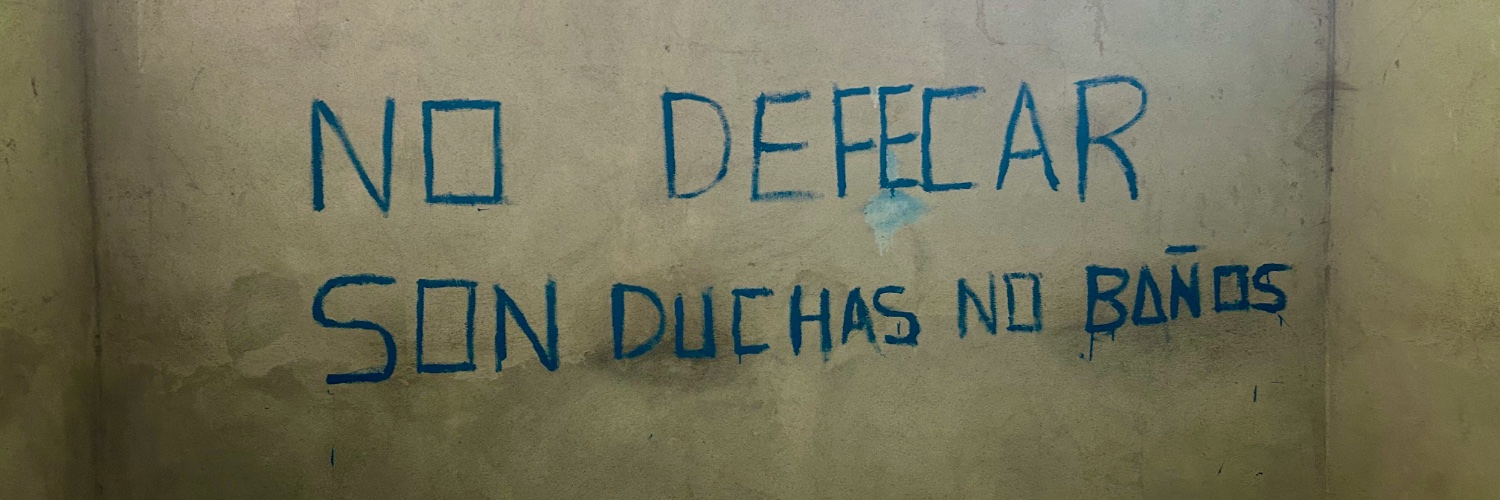 NO DEFECAR
SON DUCHAS NO BAÑOS